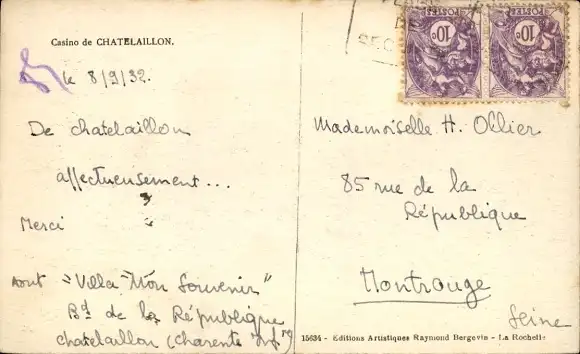 Casino de CHATELAILLON.
le 8/9/32.
De chatelaillon
affectueusement...
Merci
"Villa Mon Souvenir"
Bd de la République
chatelaillon (Charente Infre)
10c POSTES
10c POSTES
Mademoiselle H. Ollier
85 rue de la
République
Montrouge
Seine
15634 - Editions Artistiques Raymond Bergevin - La Rochelle